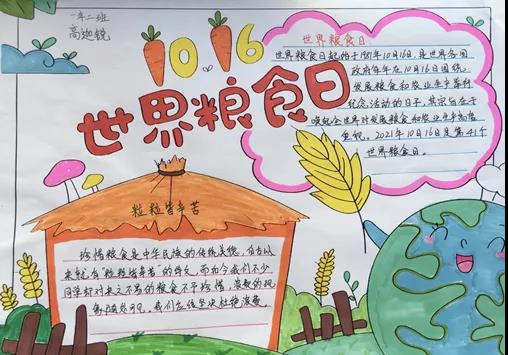 一年二班
高迦锐
10.16
世界粮食日
世界粮食日
世界粮食日起始于1981年10月16日,是世界各国
政府每年在10月16日围绕
发展粮食和农业生产举行
纪念活动的日子,其宗旨在于
唤起全世界对发展粮食和农业生产的高
度重视。2021年10月16日是第41个
世界粮食日。
粒粒皆辛苦
珍惜粮食是中华民族的传统美德,自古以
来就有"粒粒皆辛苦"的诗文,而如今我们不少
同学却对来之不易的粮食不予珍惜,浪费的现
象随处可见。我们应该坚决杜绝浪费。